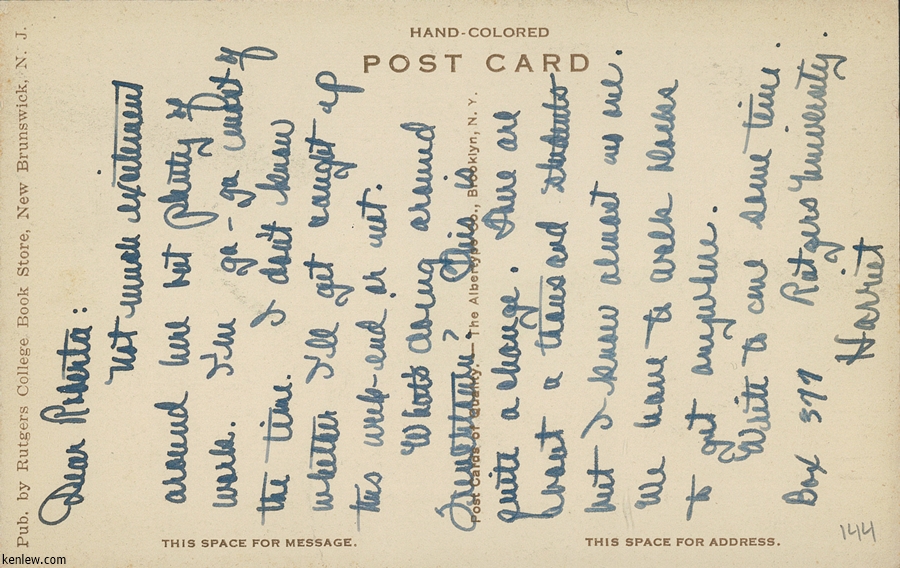 HAND-COLORED
POST CARD
Pub. by Rutgers College Book Store, New Brunswick, N. J.
Dear Roberta:
Not much excitement
around here but plenty of
work. I'm ga-ga most of
the time. I don't know
whether I'll get caught up
this week-end, or not.
What's doing around
Frenchtown? This is
Post Cards of Quality. — The Albertype Co., Brooklyn, N. Y.
quite a change. There are
about a thousand students
but I know almost no one.
We have to walk
to get anywhere.
Write to me some time.
Box 377 Rutgers University.
Harriet
THIS SPACE FOR MESSAGE.
THIS SPACE FOR ADDRESS.
144
kenlew.com